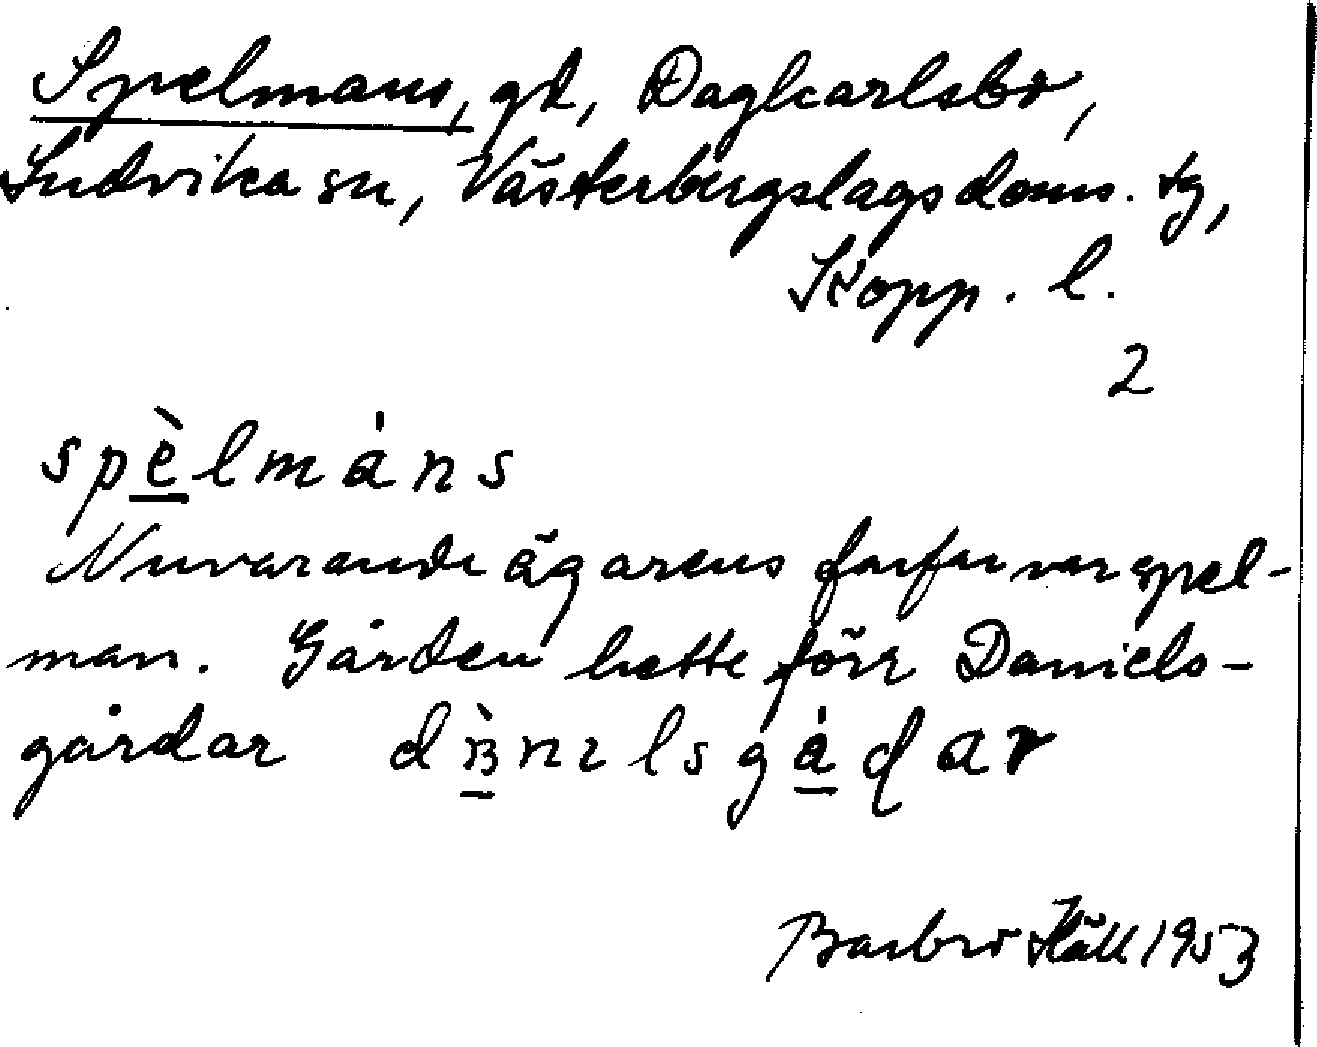 Spelmans, gd, Dagkarlsbo,
Ludvika sn, Västerbergslags doms. tg,
Kopp. l.
2
spèlmáns
Nuvarande ägarens farfar var spel-
man. Gården hette förr Daniels-
gårdar
Barbro Häll 1953